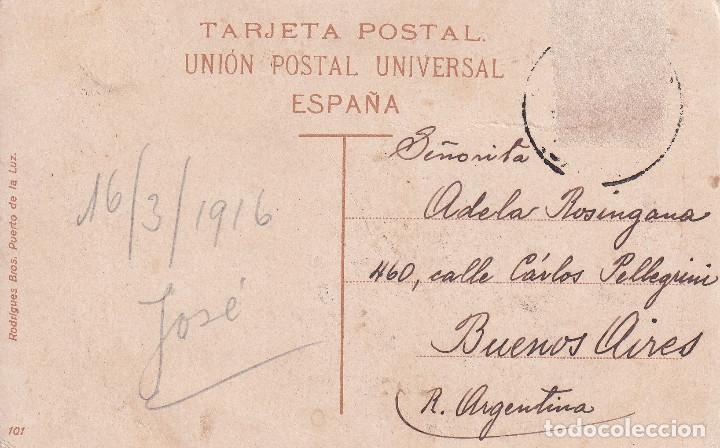 TARJETA POSTAL.
UNIÓN POSTAL UNIVERSAL
ESPAÑA
Rodrigues Bros. Puerto de la Luz.
101
16/3/1916
José
Señorita
Adela Rosingana
460, calle Cárlos Pellegrini
Buenos Aires
R. Argentina
todocoleccion